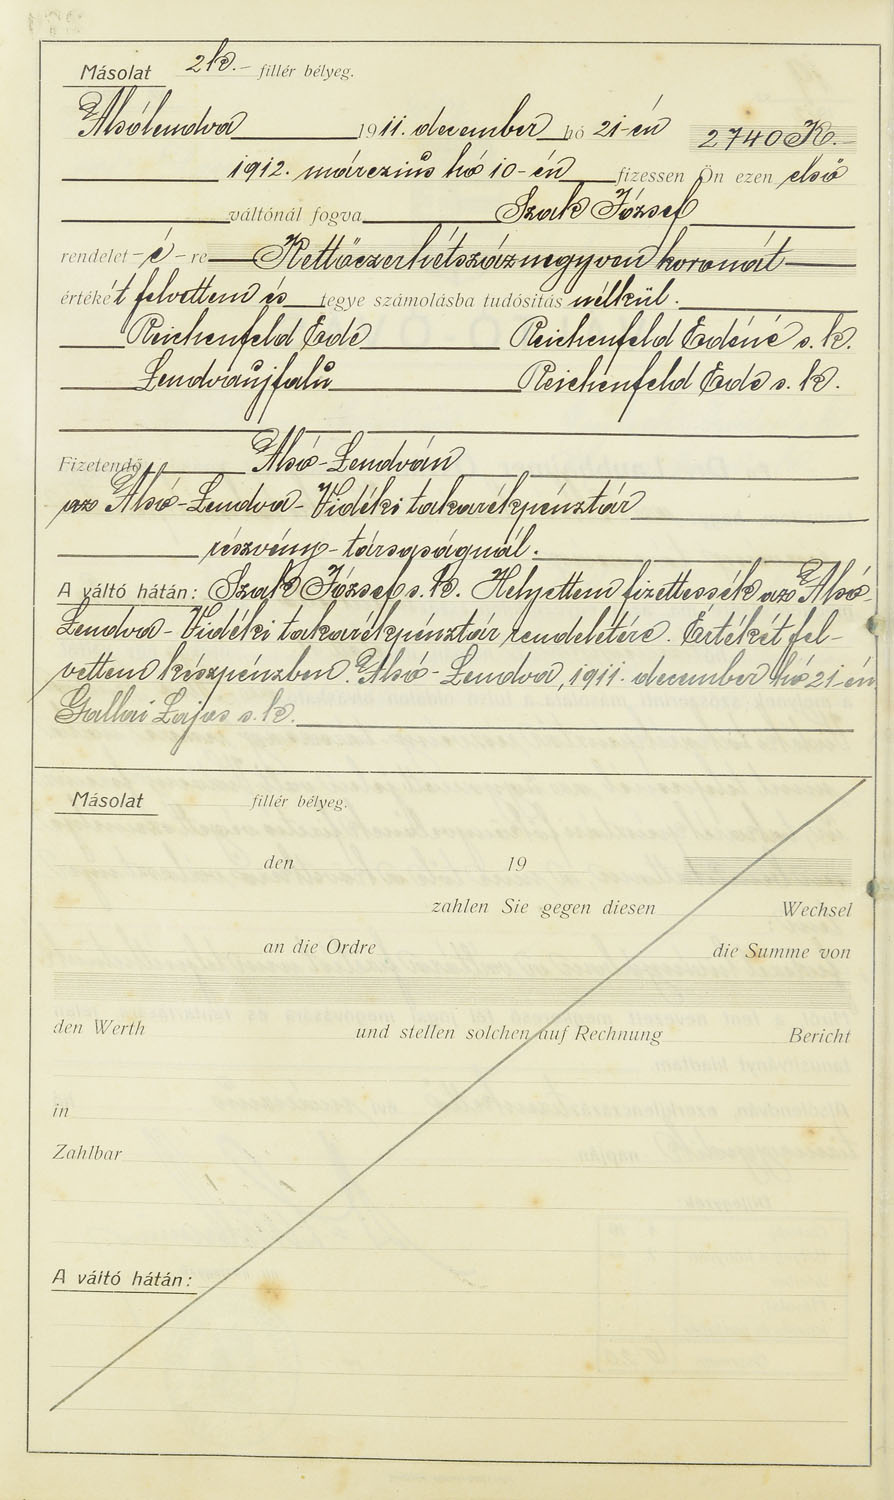 Másolat 2 k.- fillér bélyeg.
Alsólendva 1911. december hó 21-én 2740 K.-
1912. márczius hó 10-én fizessen Ön ezen első
váltónál fogva Szak József
rendelet-é-re Kettőezerhétszáznegyven koronát
értékét felvettem és tegye számolásba tudósítás nélkül.
Reichenfeld Ede Reichenfeld Edéné s. k.
Lendvaujfalu Reichenfeld Ede s. k.
Fizetendő Alsó-Lendván
az Alsó-Lendva-Vidéki takarékpénztár
részvény-társaságnál.
A váltó hátán: Szak József s. k. Helyettem fizettessék az Alsó-
Lendva-Vidéki takarékpénztár rendeletére. Értékét fel-
vettem készpénzben. Alsó-Lendva, 1911. december hó 21-én
Gallai Lajos s. k.
Másolat fillér bélyeg.
den 19
zahlen Sie gegen diesen Wechsel
an die Ordre die Summe von
den Werth und stellen solchen auf Rechnung Bericht
in
Zahlbar
A váltó hátán: